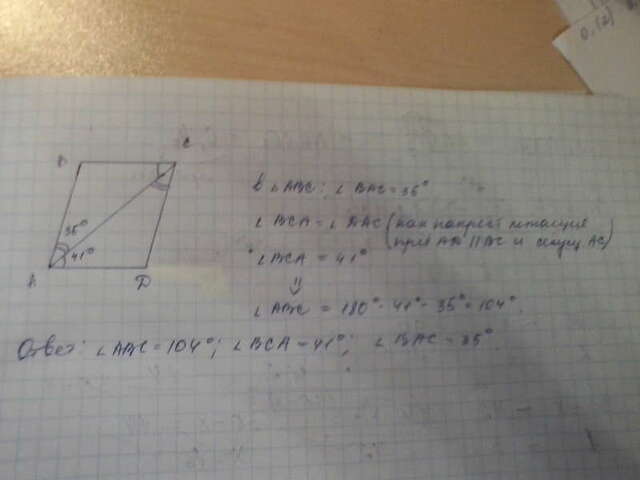 0,(2)
B
C
35°
41°
A
D
В ∠ABC: ∠BAC = 35°
∠BCA = ∠DAC (как накрест лежащие
при AD || BC и секущ AC)
∠BCA = 41°
⇓
∠ABC = 180° - 41° - 35° = 104°.
Ответ: ∠ABC = 104°; ∠BCA = 41°; ∠BAC = 35°